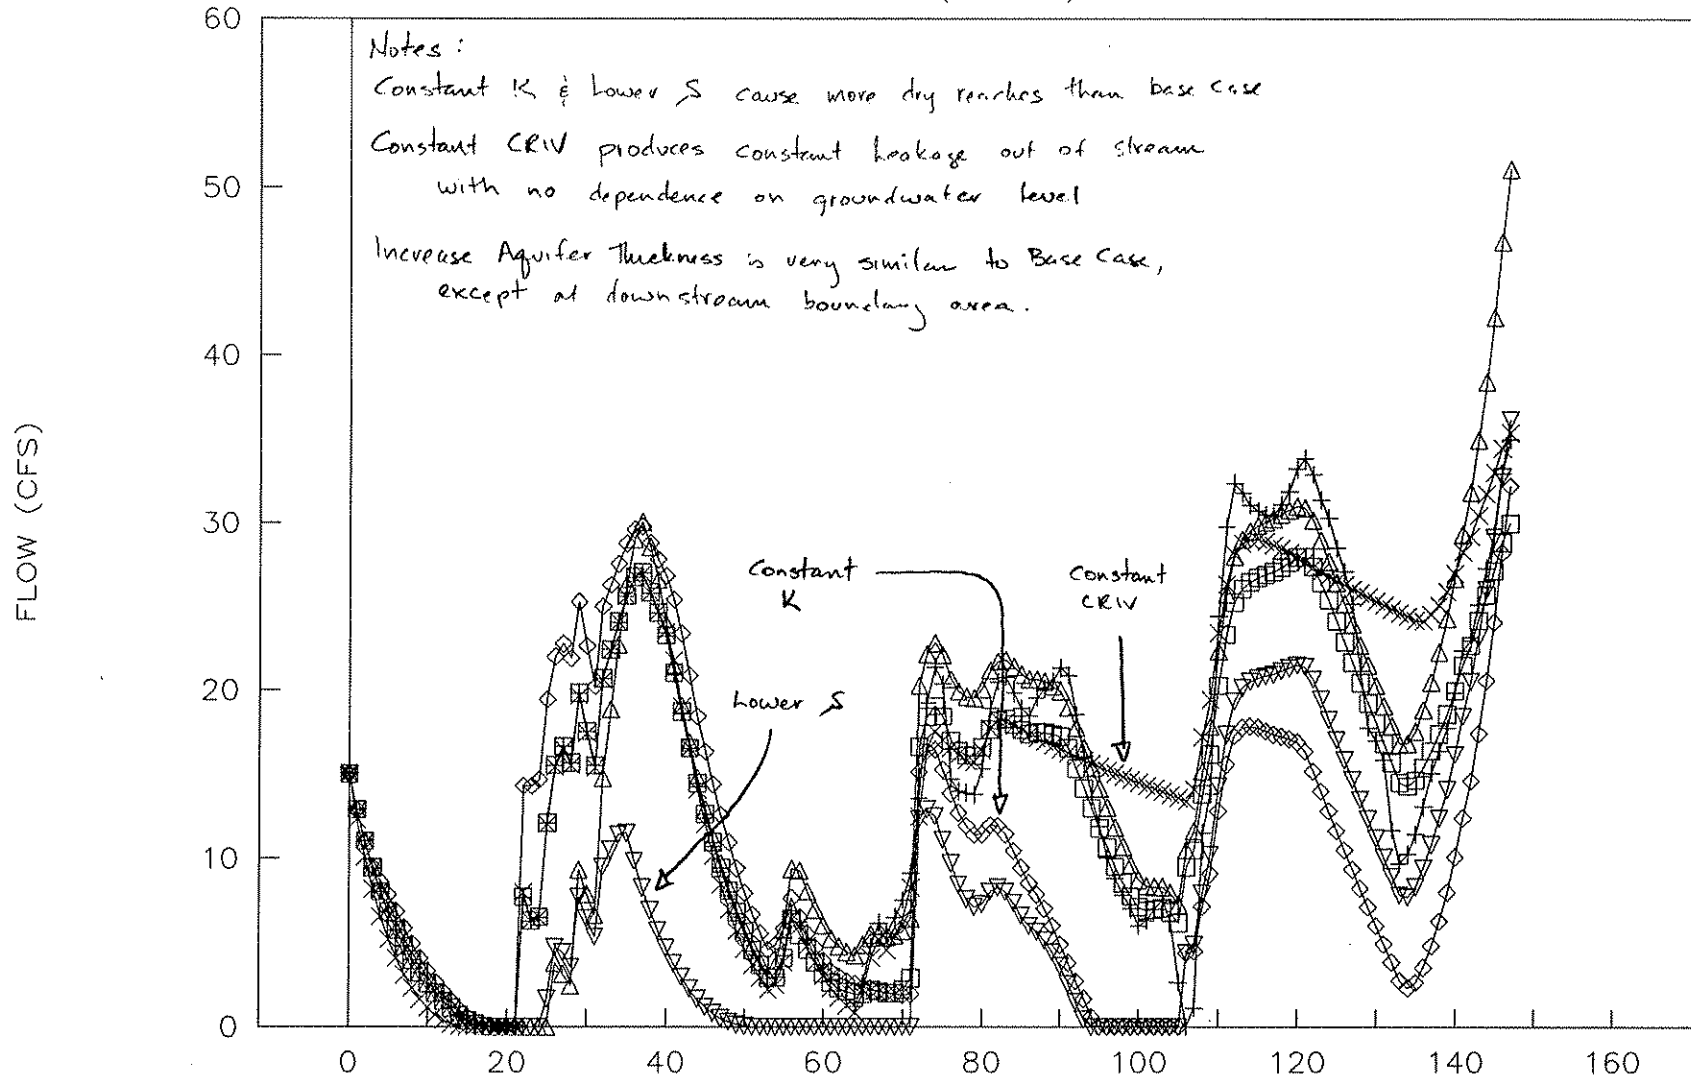 60
50
40
30
20
10
0
FLOW (CFS)
Notes :
Constant K & Lower S cause more dry reaches than base case
Constant CRIV produces constant leakage out of stream
with no dependence on groundwater level
Increase Aquifer Thickness is very similar to Base Case,
except at downstream boundary area.
Constant
K
Constant
CRIV
Lower S
0 20 40 60 80 100 120 140 160